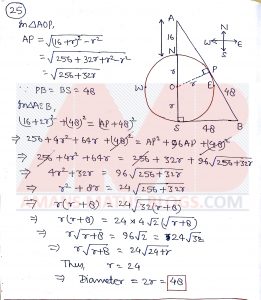 25
In ΔAOP,
AP = √(16+r)² - r²
= √256 + 32r + r² - r²
= √256 + 32r
∵ PB = BS = 48
In ΔASB,
(16+2r)² + (48)² = (AP + 48)²
⇒ 256 + 4r² + 64r + (48)² = AP² + 96AP + (48)²
⇒ 256 + 4r² + 64r = 256 + 32r + 96√256+32r
⇒ 4r² + 32r = 96√256+32r
⇒ r² + 8r = 24√256+32r
⇒ r(r+8) = 24√32(r+8)
⇒ r(r+8) = 24 × 4√2 (√r+8)
⇒ r√r+8 = 96√2 = 24√32
⇒ r√r+8 = 24√24+8
Thus, r = 24
⇒ Diameter = 2r = 48
A
16
N
r
W
O
r
P
E
r
S
48
B
48
N
W
E
S